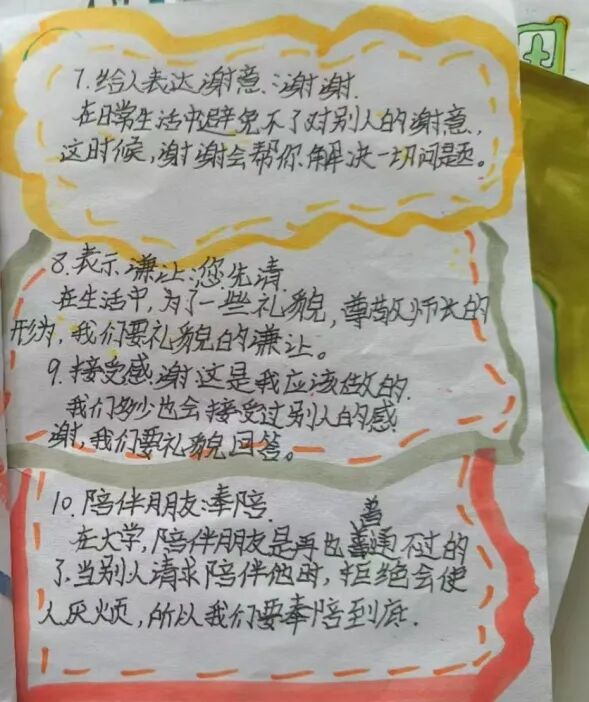 7.给人表达谢意:谢谢.
在日常生活中避免不了对别人的谢意,
这时候,谢谢会帮你解决一切问题。
8.表示谦让:您先请
在生活中,为了一些礼貌,尊敬师长的
形为,我们要礼貌的谦让。
9.接受感谢:这是我应该做的.
我们多少也会接受过别人的感
谢,我们要礼貌回答。
10.陪伴朋友:奉陪.
在大学,陪伴朋友是再也普通不过的
了.当别人请求陪伴他时,拒绝会使
人厌烦,所以我们要奉陪到底.